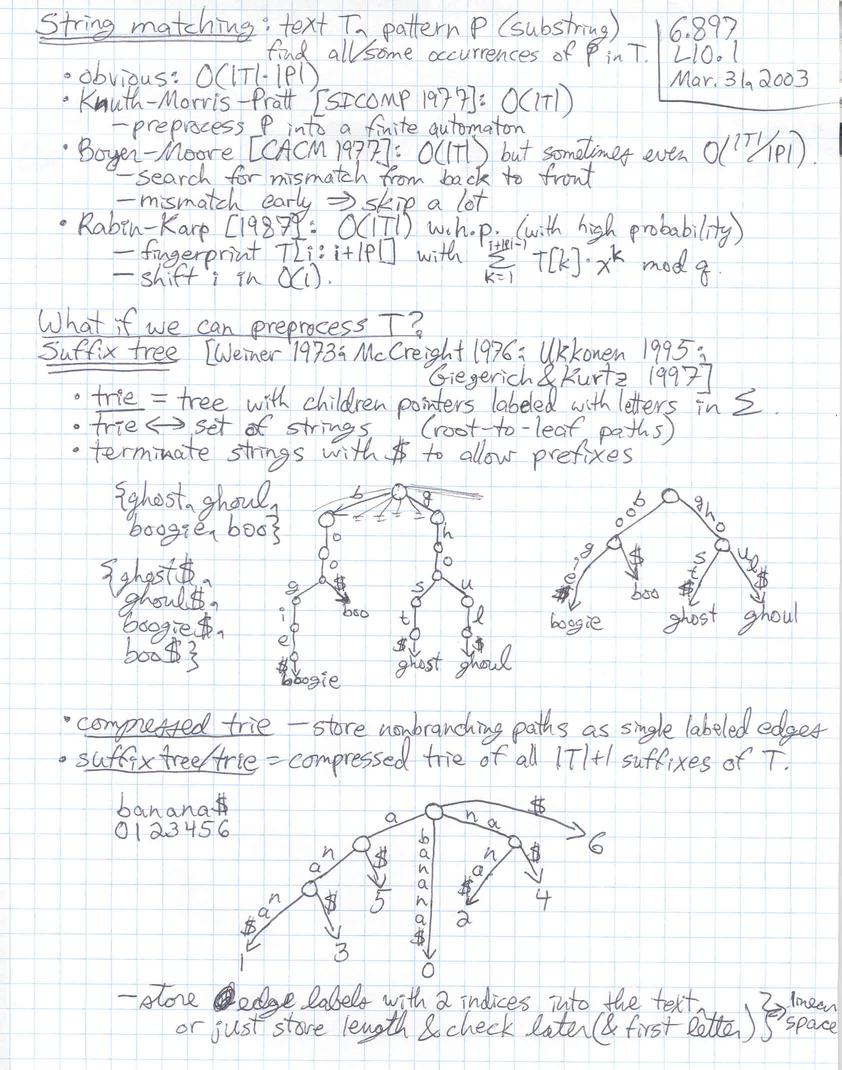 String matching: text T, pattern P (substring)
find all/some occurrences of P in T.
6.897
L10.1
Mar. 31, 2003
• obvious: O(|T|·|P|)
• Knuth-Morris-Pratt [SICOMP 1977]: O(|T|)
– preprocess P into a finite automaton
• Boyer-Moore [CACM 1977]: O(|T|) but sometimes even O(|T|/|P|).
– search for mismatch from back to front
– mismatch early ⇒ skip a lot
• Rabin-Karp [1987]: O(|T|) w.h.p. (with high probability)
– fingerprint T[i:i+|P|] with Σ_{k=1}^{i+|P|-1} T[k]·x^k mod q.
– shift i in O(1).
What if we can preprocess T?
Suffix tree [Weiner 1973; McCreight 1976; Ukkonen 1995;
Giegerich & Kurtz 1997]
• trie = tree with children pointers labeled with letters in Σ.
• trie ↔ set of strings (root-to-leaf paths)
• terminate strings with $ to allow prefixes
{ghost, ghoul,
boogie, boo}
{ghost$,
ghoul$,
boogie$,
boo$}
b g
o h
o o
g $ s u
boo
i t l
e $ $
$ ghost ghoul
boogie
b o o g h o
g i e $ $ s t $ u l $
boogie boo ghost ghoul
• compressed trie – store nonbranching paths as single labeled edges
• suffix tree/trie = compressed trie of all |T|+1 suffixes of T.
banana$
0123456
a banana$ na $
na $ na$ $
na$ $ 5 2 4 6
1 3 0
– store edge labels with 2 indices into the text,
or just store length & check later (& first letter)
} ⇒ linear
space